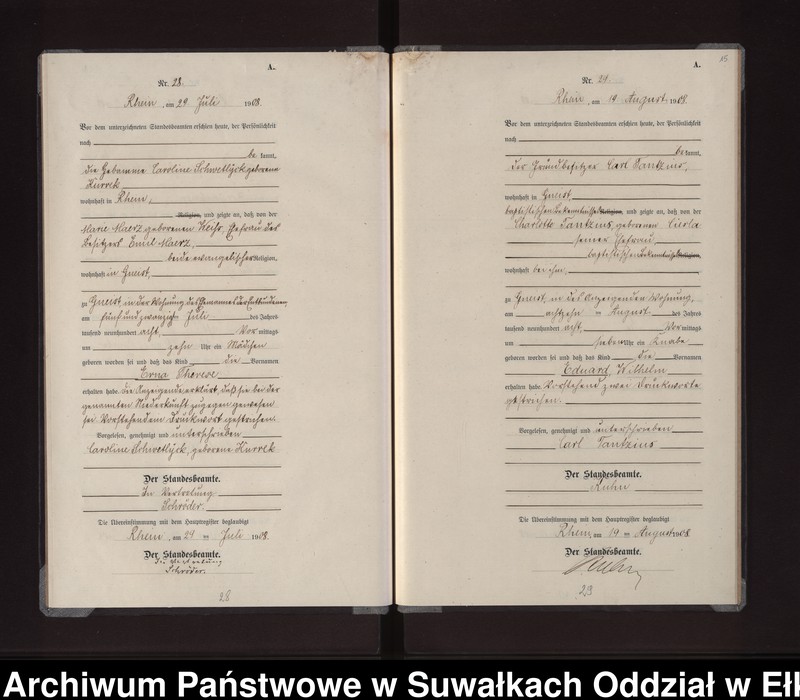 A.
Nr. 28.
Rhein, am 29 Juli 1908.
Vor dem unterzeichneten Standesbeamten erschien heute, der Persönlichkeit
nach
be kannt,
die Hebamme Caroline Schwetlyck geborene
Kurrek
wohnhaft in Rhein,
Religion, und zeigte an, daß von der
Marie Maerz, geborenen Ehefrau des
Besitzers Emil Maerz,
beide evangelischer Religion,
wohnhaft in Gneist,
zu Gneist, in der Wohnung des Ehemannes der Entbundenen,
am fünfundzwanzig Juli des Jahres
tausend neunhundert acht, Vor mittags
um zehn Uhr ein Mädchen
geboren worden sei und daß das Kind die Vornamen
Erna Therese
erhalten habe. Die Anzeigende erklärt, daß sie bei der
genannten Niederkunft zugegen gewesen
sei. Vorstehendem Druckwort gestrichen.
Vorgelesen, genehmigt und unterschrieben
Caroline Schwetlyck, geborene Kurrek
Der Standesbeamte.
In Vertretung
Schröder.
Die Übereinstimmung mit dem Hauptregister beglaubigt
Rhein, am 29 ten Juli 1908.
Der Standesbeamte.
In Vertretung
Schröder.
28
15
A.
Nr. 29.
Rhein, am 19 August 1908.
Vor dem unterzeichneten Standesbeamten erschien heute, der Persönlichkeit
nach
be kannt,
der Grundbesitzer Carl Tantzius,
wohnhaft in Gneist
baptistischen Bekenntnisses Religion, und zeigte an, daß von der
Charlotte Tantzius, geborenen
seiner Ehefrau
baptistischen Bekenntnisses Religion,
wohnhaft bei ihm
zu Gneist, in des Anzeigenden Wohnung,
am achtzehn ten August des Jahres
tausend neunhundert acht, Vor mittags
um sieben Uhr ein Knabe
geboren worden sei und daß das Kind die Vornamen
Eduard, Wilhelm
erhalten habe. Vorstehend zwei Druckworte
gestrichen.
Vorgelesen, genehmigt und unterschrieben
Carl Tantzius
Der Standesbeamte.
Kuhn
Die Übereinstimmung mit dem Hauptregister beglaubigt
Rhein, am 19 ten August 1908
Der Standesbeamte.
Kuhn
29
Archiwum Państwowe w Suwałkach Oddział w Eł